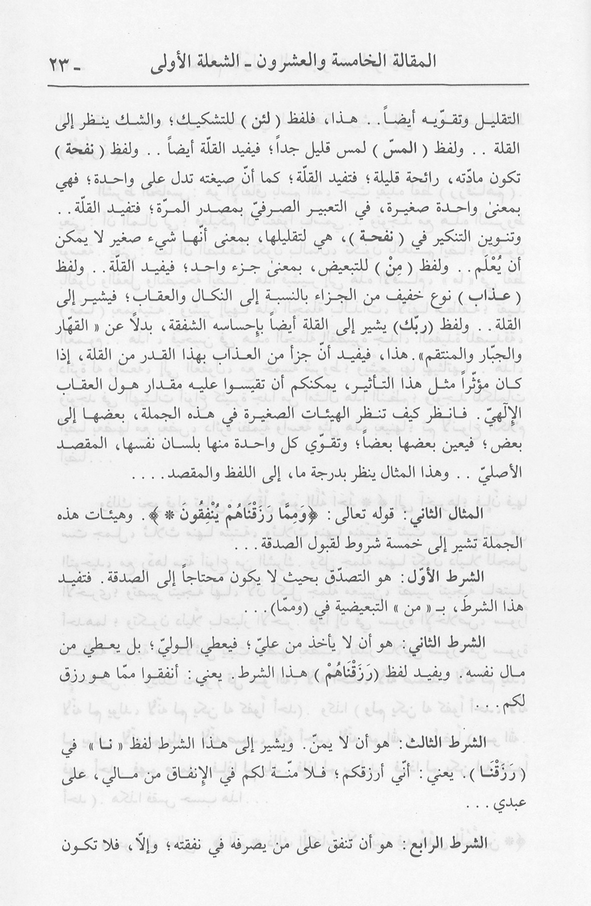 المقالة الخامسة والعشرون ـ الشعلة الأولى ـ ٢٣
التقليل وتقوّيه أيضاً . . هـذا، فلفظ ( لئن ) للتشكيك؛ والشك ينظر إلى
القلة . . ولفظ ( المسّ ) لمس قليل جداً؛ فيفيد القلّة أيضاً . . ولفظ ( نفحة )
تكون مادّته، رائحة قليلة؛ فتفيد القلّة؛ كما أنّ صيغته تدل على واحدة؛ فهي
بمعنىٰ واحدة صغيرة، في التعبير الصرفيّ بمصدر المرّة؛ فتفيد القلّة . .
وتنوين التنكير في ( نفحـة )، هي لتقليلها، بمعنى أنّـها شيء صغير لا يمكن
أن يُعْلَم . . ولفظ ( مِنْ ) للتبعيض، بمعنىٰ جزء واحد؛ فيفيد القلّة . . ولفظ
( عـذاب ) نوع خفيف من الجزاء بالنسبة إلى النكال والعقاب؛ فيشير إلى
القلة . . ولفظ (ربّك) يشير إلى القلة أيضاً بإحساسه الشفقة، بدلًا عن « القهّار
والجبّار والمنتقم ». هذا، فيفيد أنّ جزأ من العذاب بهذا القدر من القلة، إذا
كـان مؤثّراً مثـل هـذا التـأثـير، يمكنكم أن تقيسـوا عليـه مقـدار هـول العقـاب
الإلٰهيّ. فـانظر كيف تنظر الهيئات الصغيرة في هـذه الجملة، بعضهـا إلى
بعض؛ فيعين بعضها بعضاً؛ وتقوّي كل واحدة منها بلسان نفسها، المقصد
الأصليّ . . وهذا المثال ينظر بدرجة ما، إلى اللفظ والمقصد . . . .
المثال الثاني: قوله تعالى: ﴿وَمِمَّا رَزَقْنَاهُمْ يُنْفِقُونَ * ﴾. وهيئات هذه
الجملة تشير إلى خمسة شروط لقبول الصدقة . . .
الشرط الأوّل: هو التصدّق بحيث لا يكون محتاجاً إلى الصدقة. فتفيد
هذا الشرطَ، بـ « من » التبعيضية في (وممّا) . . .
الشرط الثاني: هو أن لا يأخذ من عليّ؛ فيعطي الوليّ؛ بل يعطي من
مال نفسه. ويفيد لفظ (رَزَقْنَاهُمْ ) هـذا الشرط. يعني: أنفقوا ممّا هـو رزق
لكم . . .
الشرط الثالث: هو أن لا يمنّ. ويشير إلى هـذا الشرط لفظ « نـا » في
( رَزَقْنَـا ). يعني: أنّي أرزقكم؛ فـلا منّـة لكم في الإنفـاق من مـالي، على
عبدي . . .
الشرط الرابع: هو أن تنفق على من يصرفه في نفقته؛ وإلّا، فلا تكون